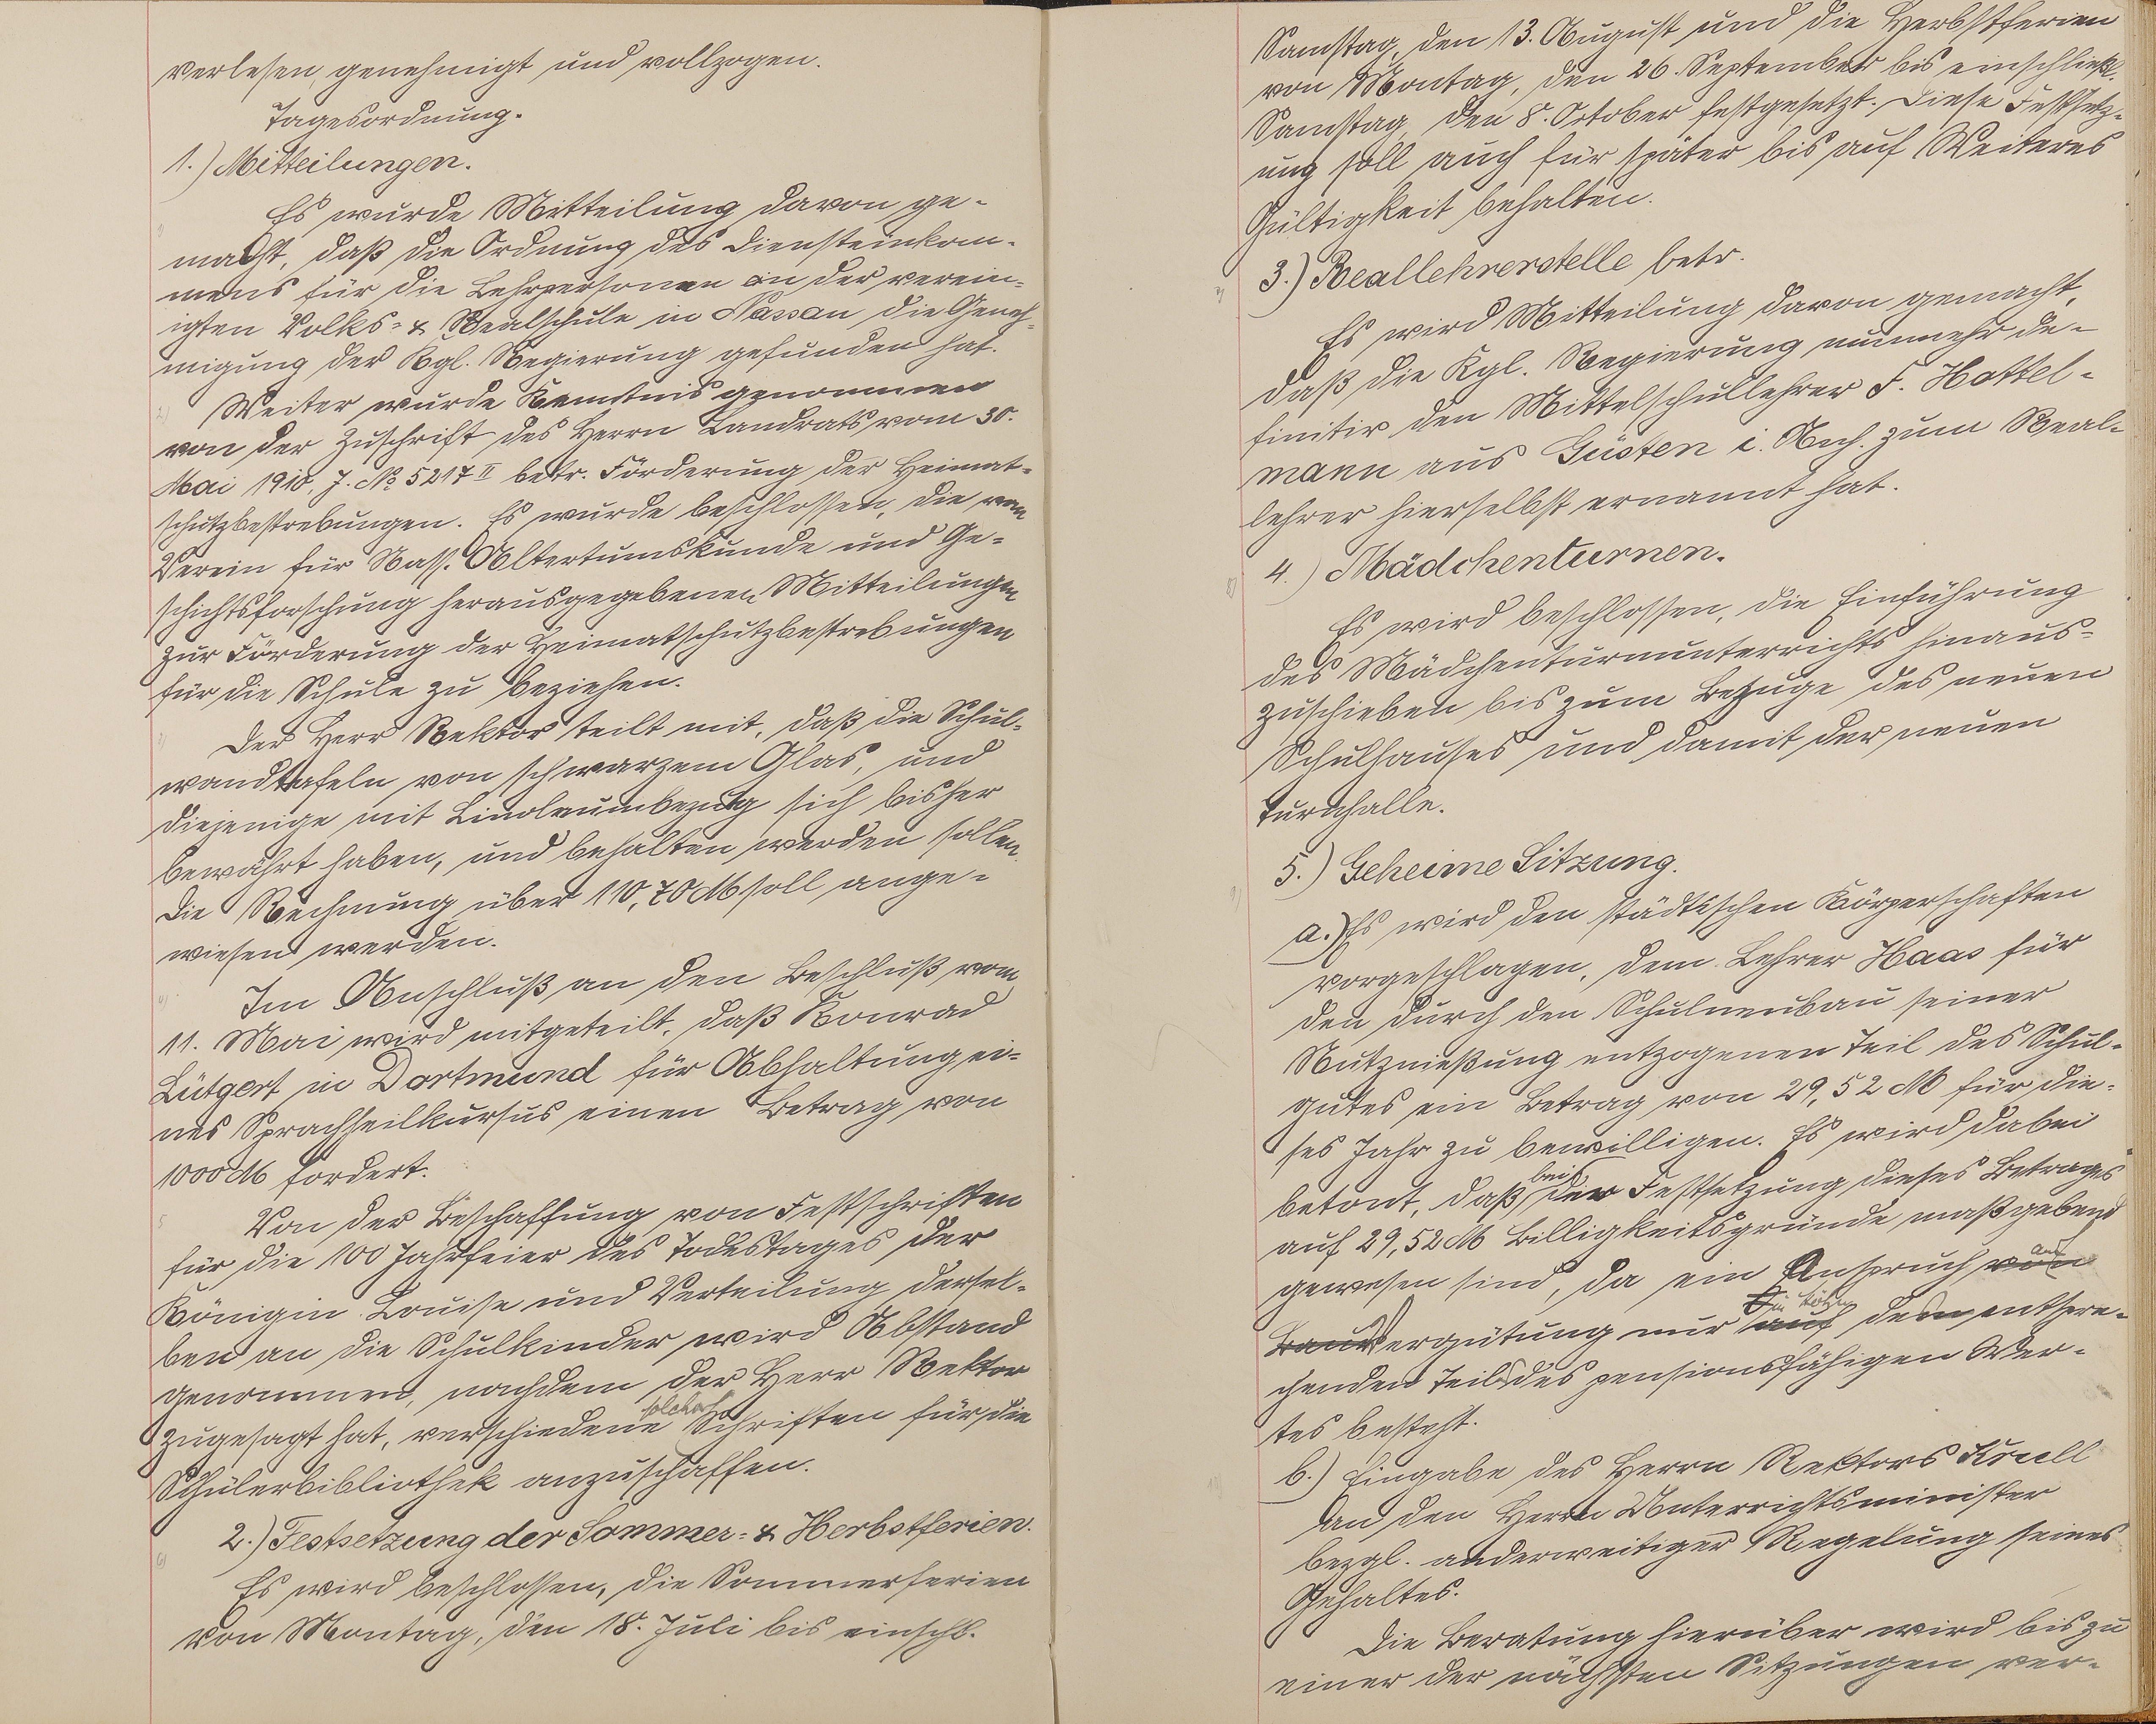 verlesen, genehmigt und vollzogen.
Tagesordnung.
1.) Mitteilungen.
Es wurde Mitteilung davon ge-
macht, daß die Ordnung des Diensteinkom-
mens für die Lehrpersonen an der verein-
igten Volks- & Realschule in Nassau die Geneh-
migung der Kgl. Regierung gefunden hat.
Weiter wurde Kenntnis genommen
von der Zuschrift des Herrn Landrats vom 30.
Mai 1910, J. № 5217 II betr. Förderung der Heimat-
schutzbestrebungen. Es wurde beschlossen, die vom
Verein für Nass. Altertumskunde und Ge-
schichtsforschung herausgegebenen Mitteilungen
zur Förderung der Heimatschutzbestrebungen
für die Schule zu beziehen.
Der Herr Rektor teilt mit, daß die Schul-
wandtafeln von schwarzem Glas, und
diejenige mit Linoleumbezug sich bisher
bewährt haben, und behalten werden sollen.
Die Rechnung über 110,70 M soll ange-
wiesen werden.
Im Anschluß an den Beschluß vom
11. Mai wird mitgeteilt, daß Konrad
Lütgert in Dortmund für Abhaltung ei-
nes Sprachheilkursus einen Betrag von
1000 M fordert.
Von der Beschaffung von Festschriften
für die 100 Jahrfeier des Todestages der
Königin Louise und Verteilung dersel-
ben an die Schulkinder wird Abstand
genommen, nachdem der Herr Rektor
zugesagt hat, verschiedene solcher Schriften für die
Schülerbibliothek anzuschaffen.
2.) Festsetzung der Sommer- & Herbstferien.
Es wird beschlossen, die Sommerferien
von Montag, den 18. Juli bis einschl.
Samstag, den 13. August und die Herbstferien
von Montag, den 26. September bis einschließl.
Samstag, den 8. October festgesetzt. Diese Festsetz-
ung soll auch für später bis auf Weiteres
Gültigkeit behalten.
3.) Reallehrerstelle betr.
Es wird Mitteilung davon gemacht,
daß die Kgl. Regierung nunmehr de-
finitiv den Mittelschullehrer F. Hottel-
mann aus Güsten i. Anh. zum Real-
lehrer hierselbst ernannt hat.
4.) Mädchenturnen.
Es wird beschlossen, die Einführung
des Mädchenturnunterrichts hinaus-
zuschieben bis zum Bezuge des neuen
Schulhauses und damit der neuen
Turnhalle.
5.) Geheime Sitzung.
a.) Es wird den städtischen Körperschaften
vorgeschlagen, dem Lehrer Haas für
den durch den Schulneubau seiner
Nutznießung entzogenen Teil des Schul-
gutes ein Betrag von 29,52 M für die-
ses Jahr zu bewilligen. Es wird dabei
betont, daß bei der Festsetzung dieses Betrages
auf 29,52 M Billigkeitsgründe maßgebend
gewesen sind, da ein Anspruch von auf
Vergütung nur auf in Höhe dem entspre-
chenden Teils des pensionsfähigen Wer-
tes besteht.
b.) Eingabe des Herrn Rektors Krell
an den Herrn Unterrichtsminister
bezgl. anderweitiger Regelung seines
Gehaltes.
Die Beratung hierüber wird bis zu
einer der nächsten Sitzungen ver-